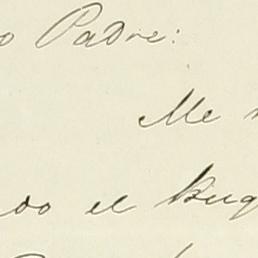 o Padre:
Me
do el Buq